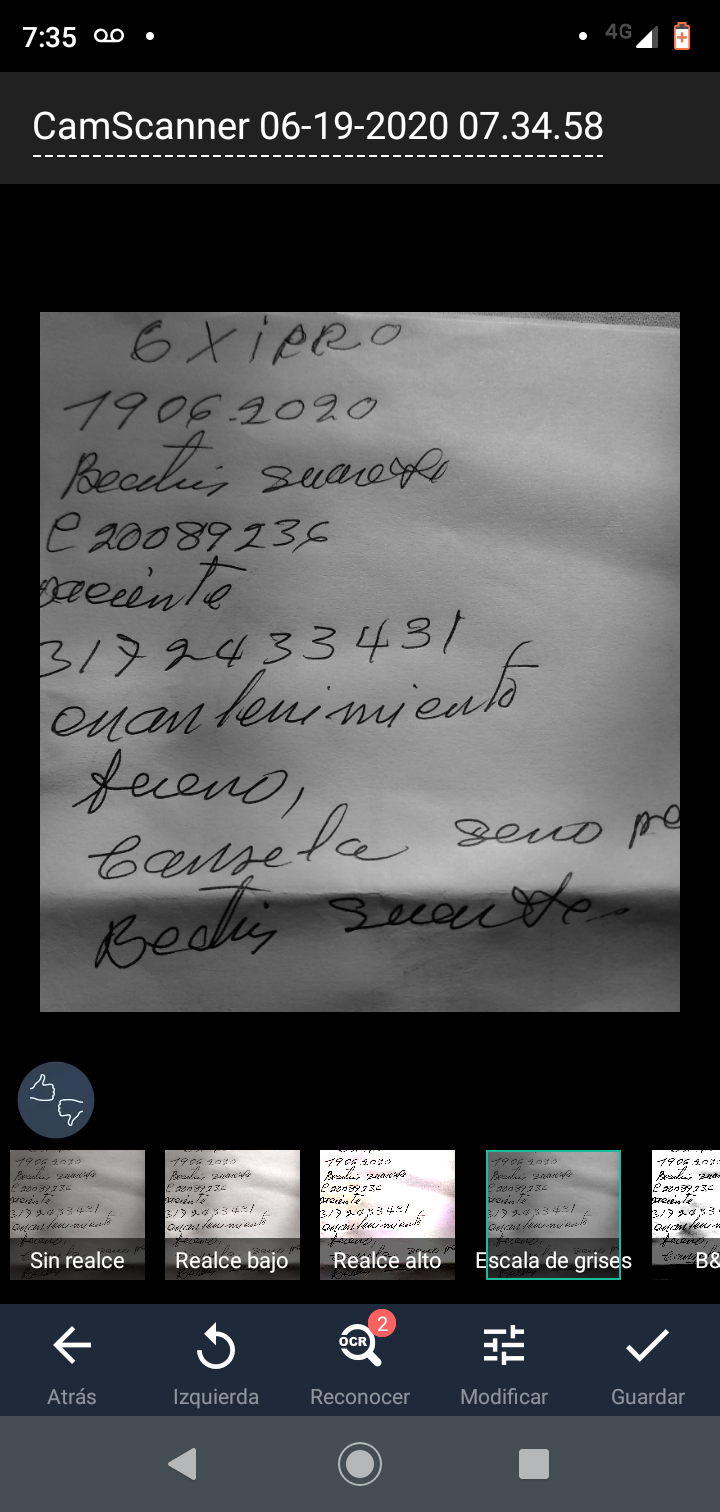 7:35
4G
CamScanner 06-19-2020 07.34.58
19062020
Beatris
20089236
paciente
3172433431
mantenimiento
bueno,
Cansela seno
Beatris
Sin realce
Realce bajo
Realce alto
Escala de grises
B&
OCR
2
Atrás
Izquierda
Reconocer
Modificar
Guardar